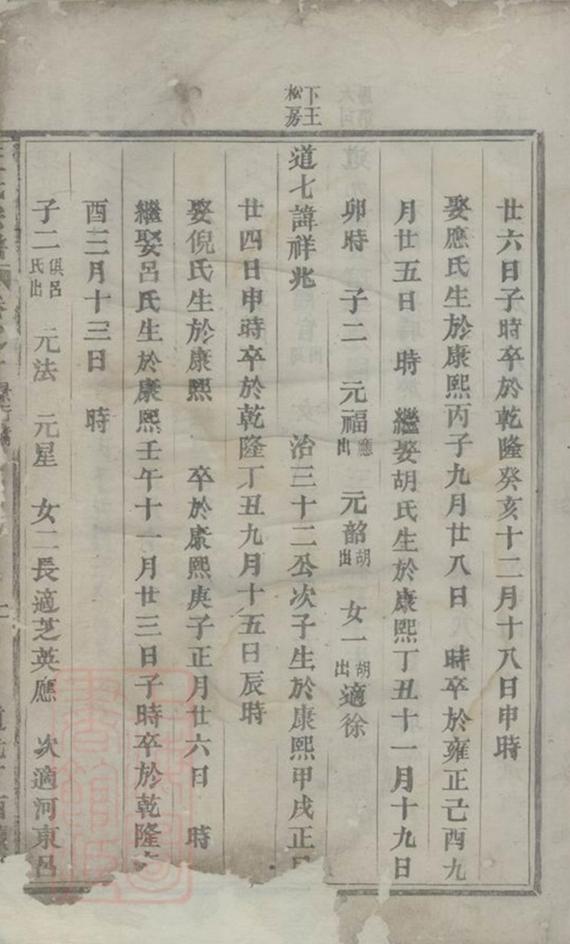 下王
松房
廿六日子時卒於乾隆癸亥十二月十八日申時
娶應氏生於康熙丙子九月廿八日 時卒於雍正己酉九
月廿五日 時 繼娶胡氏生於康熙丁丑十一月十九日
卯時 子二 元福應出 元韶胡出 女一胡出適徐
道七諱祥兆 治三十二公次子生於康熙甲戌正月
廿四日申時卒於乾隆丁丑九月十五日辰時
娶倪氏生於康熙 卒於康熙庚子正月廿六日 時
繼娶呂氏生於康熙壬午十一月廿三日子時卒於乾隆
酉三月十三日 時
子二俱呂氏出 元法 元星 女二長適芝英應 次適河東呂